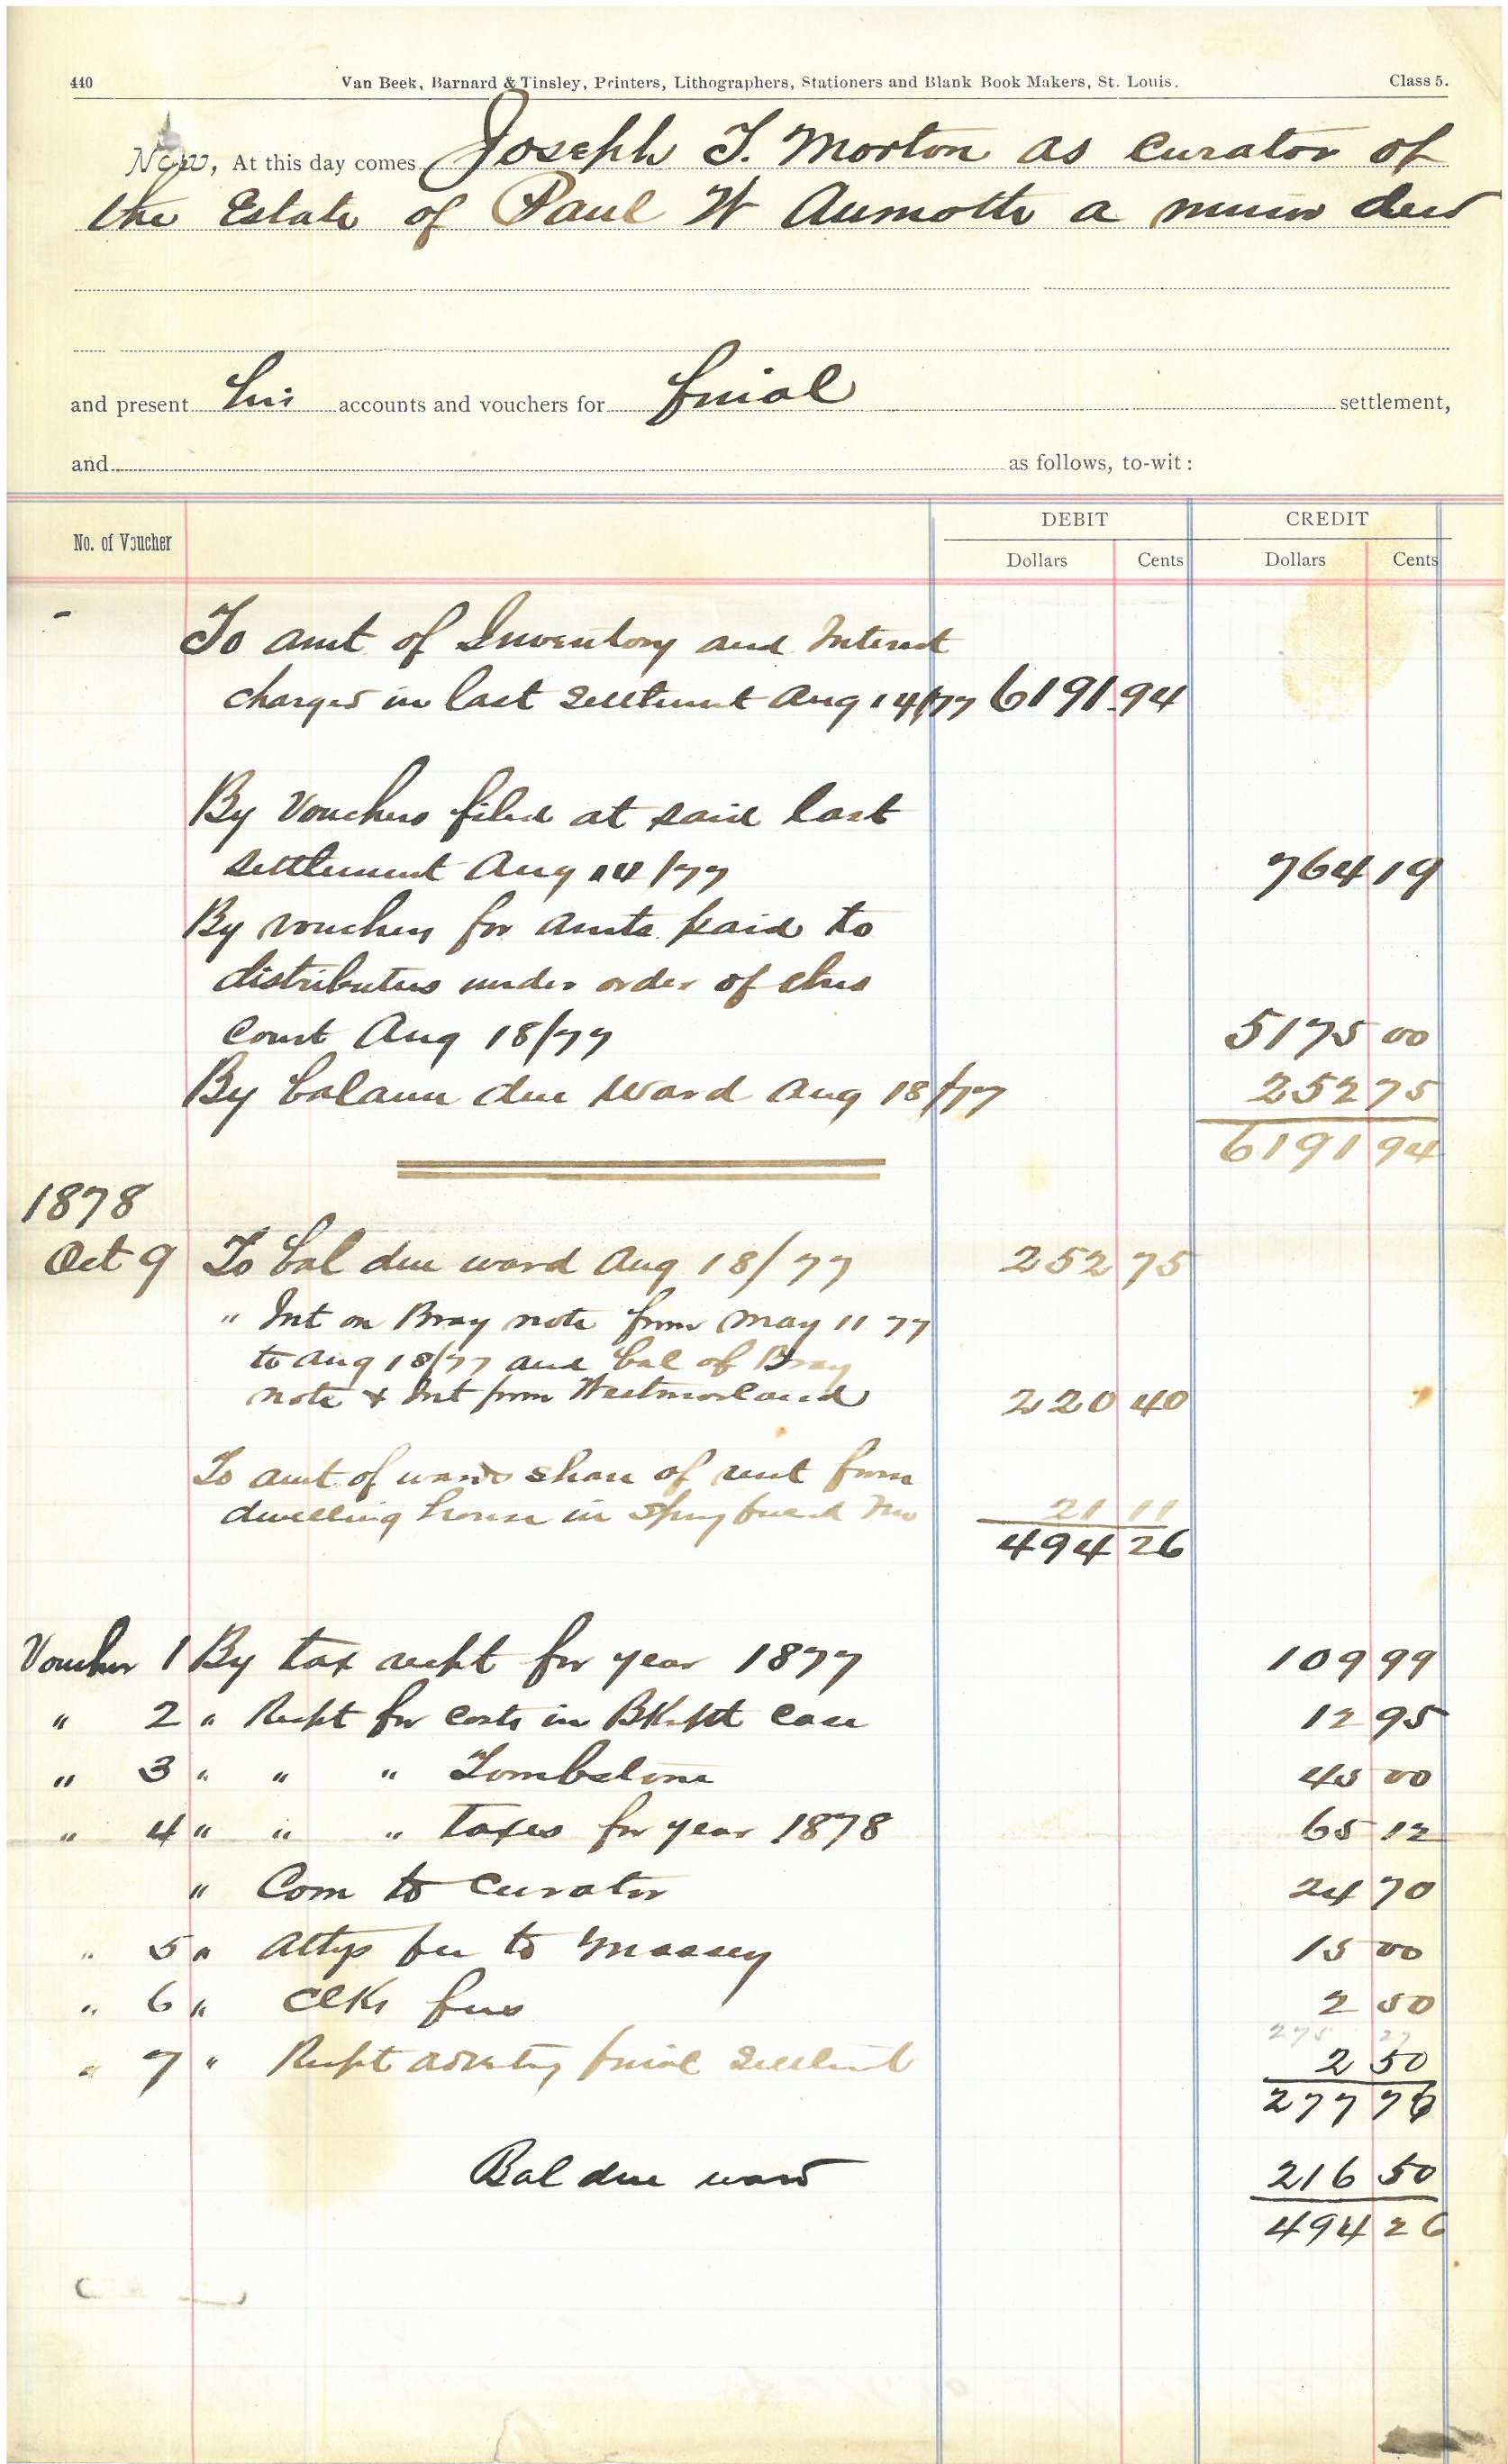 440 Van Beek, Barnard & Tinsley, Printers, Lithographers, Stationers and Blank Book Makers, St. Louis. Class 5.
Now, At this day comes Joseph T. Morton as Curator of
the Estate of Paul W Aumoth a minor decd
and present his accounts and vouchers for final settlement,
and as follows, to-wit:
No. of Voucher DEBIT CREDIT
Dollars Cents Dollars Cents
To amt of Inventory and Interest
charged in last Settlement Aug 14/77 6191.94
By Vouchers filed at said last
Settlement Aug 14/77 764 19
By vouchers for amts paid to
distributees under order of this
Court Aug 18/77 5175 00
By balance due Ward Aug 18/77 252 75
6191 94
1878
Oct 9 To bal due ward Aug 18/77 252 75
" Int on Bray note from May 11 77
to Aug 18/77 and bal of Bray
note & Int from Westmorland 220 40
To amt of wards share of rent from
dwelling house in Springfield Mo 21 11
494 26
Voucher 1 By tax recpt for year 1877 109 99
" 2 " Recpt for Costs in BKrpt Case 12 95
" 3 " " " Tombstone 45 00
" 4 " " " taxes for year 1878 65 12
" Com to Curator 24 70
" 5 " Attys fee to Massey 15 00
" 6 " Clks fees 2 50
275 27
" 7 " Recpt advertg final Settlmt 2 50
277 76
Bal due ward 216 50
494 26